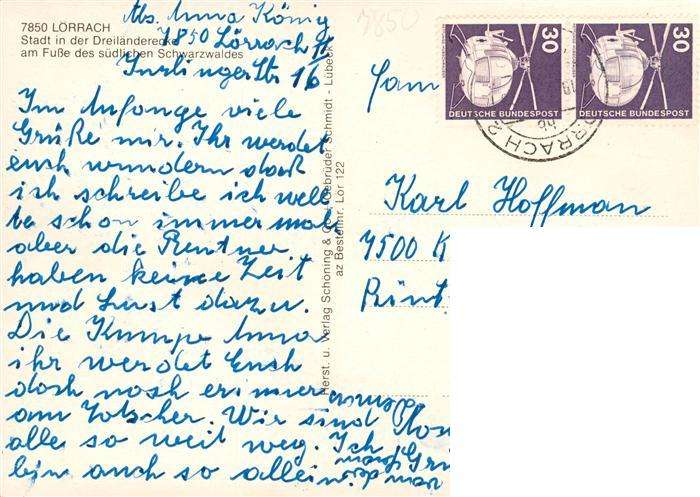 7850 LÖRRACH
Stadt in der Dreiländerecke
am Fuße des südlichen Schwarzwaldes
Abs. Anna König
7850 Lörrach
Inzlinger Str 16
Im Anfange viele
Grüße mir. Ihr werdet
euch wundern daß
ich schreibe ich woll
te schon immer mal
aber die Rentner
haben keine Zeit
und Lust dazu.
Die Anna
ihr werdet Euch
doch noch erinner
am Wir sind
alle so weit weg. Ich
bin auch so allein.
Herst. u. Verlag Schöning & Co + Gebrüder Schmidt - Lübeck
az Bestellnr. Lör 122
7850
30
DEUTSCHE BUNDESPOST
30
DEUTSCHE BUNDESPOST
LÖRRACH 2
Fam
Karl Hoffman
7500 K
Rint